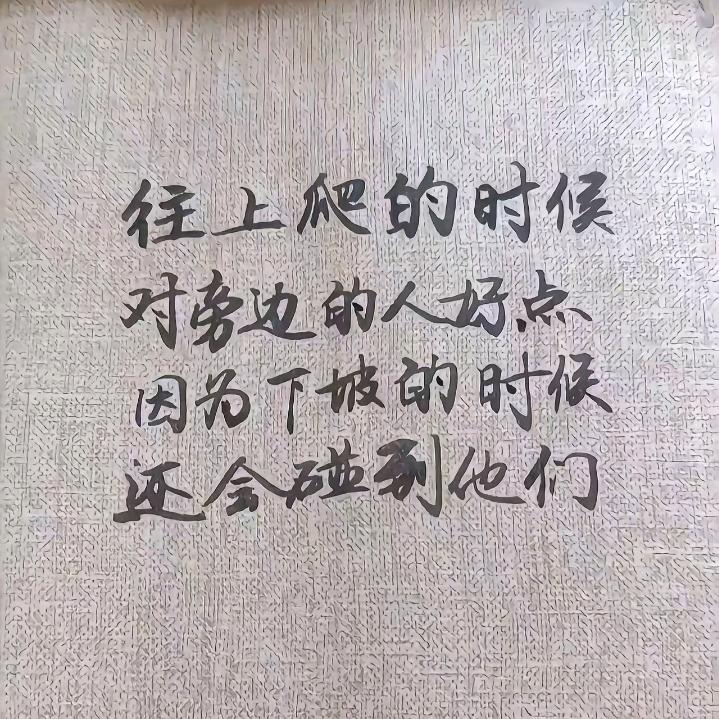 往上爬的时候
对旁边的人好点
因为下坡的时候
还会碰到他们